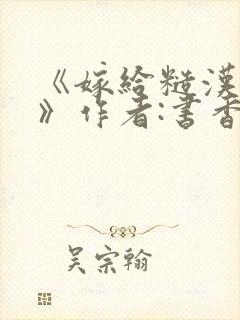 《嫁给糙漢
》作者:書香
吴宗翰